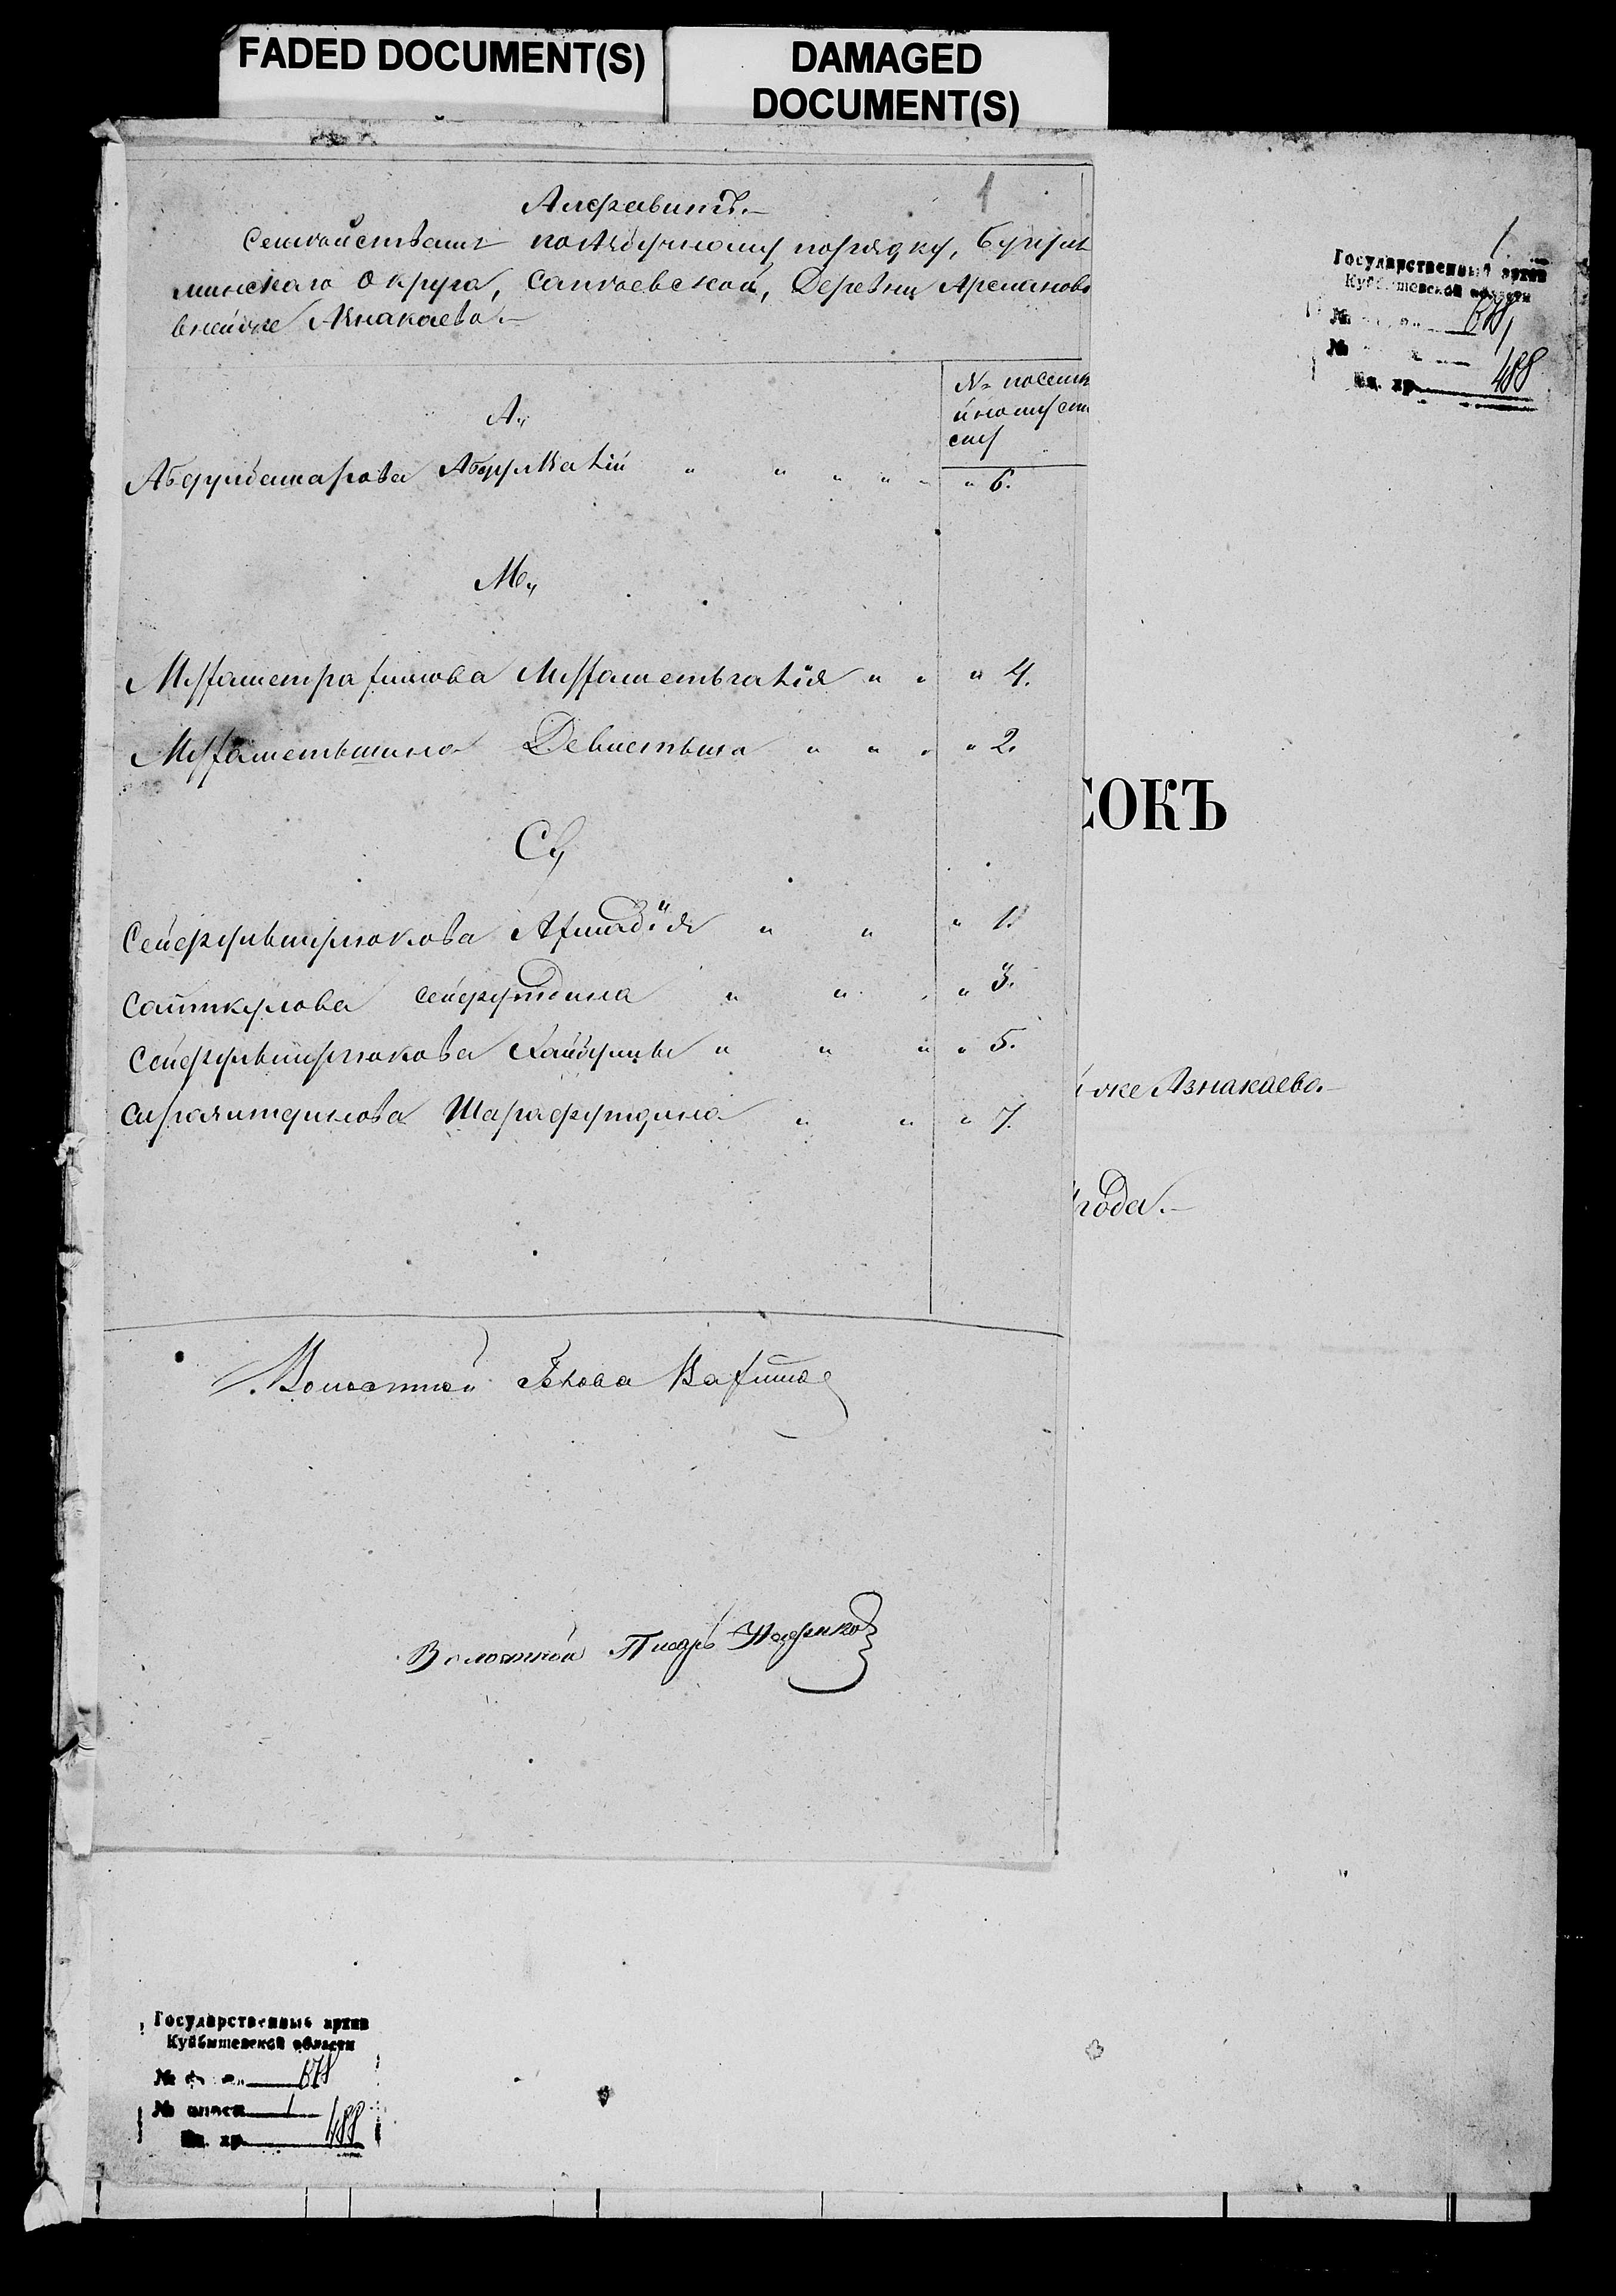 FADED DOCUMENT(S)
DAMAGED
DOCUMENT(S)
1
Алфавитъ.
Семействамъ поазбучному порядку, Бугуль
минскаго Округа, Сапеевской, Деревни Арсланово
внейже Азнакаево.
№ посемѣ
йному спи
ску
А,,
Абдулгафарова Абдулвалій " " " " " " 6.
М,,
Мухаметрахимова Мухаметьгалія " " " 4.
Мухаметьшина Девлетьша " " " " 2.
С,,
Сейфульмулюкова Ахмадія " " " 1.
Саиткулова Сейфутдина " " " 3.
Сейфульмулюкова Хайбуллы " " " " 5.
Сиразитдинова Шарафутдина " " " 7.
Волостной Голова
Волостной Писарь
1
Государственный архив
Куйбышевской области
№
№
Ед. хр. 488
СОКЪ
же Азнакаево.
года.
Государственный архив
Куйбышевской области
№
№ описи 1
Ед. хр. 488